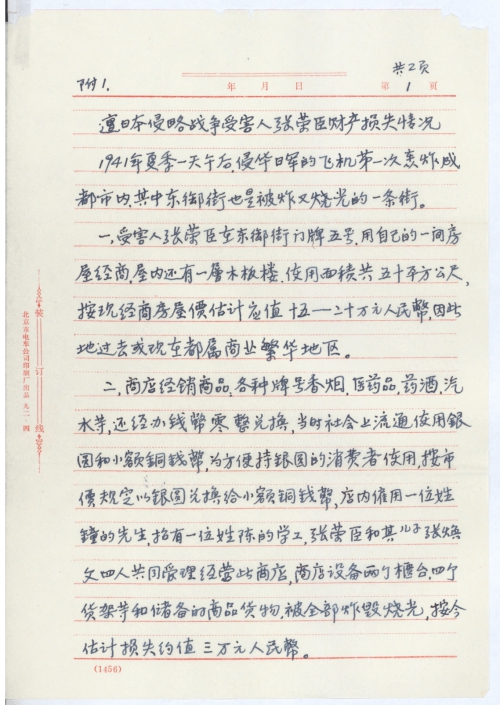 共2页
附1.
年 月 日 第 1 页
遭日本侵略战争受害人张荣臣财产损失情况
1941年夏季一天午后,侵华日军的飞机第一次轰炸成
都市内,其中东御街也是被炸又烧光的一条街。
一、受害人张荣臣在东御街门牌五号,用自己的一间房
屋经商,屋内还有一层木板楼,使用面积共五十平方公尺,
按现经商房屋價估计应值十五—二十万元人民幣,因此
地过去或现在都属商业繁华地区。
二、商店经销商品,各种牌号香烟,医药品,药酒,汽
水等,还经办钱幣零整兑换,当时社会上流通使用银
圆和小额铜钱幣,为方便持银圆的消费者使用,按市
價规定以银圆兑换给小额铜钱幣,店内僱用一位姓
鐘的先生,招有一位姓陈的学工,张荣臣和其儿子张焕
文四人共同管理经营此商店,商店设备两个櫃台,四个
货架等和储备的商品货物,被全部炸毁烧光,按今
估计损失约值三万元人民幣。
(1456)
装订线
北京市电车公司印刷厂出品 九二·四